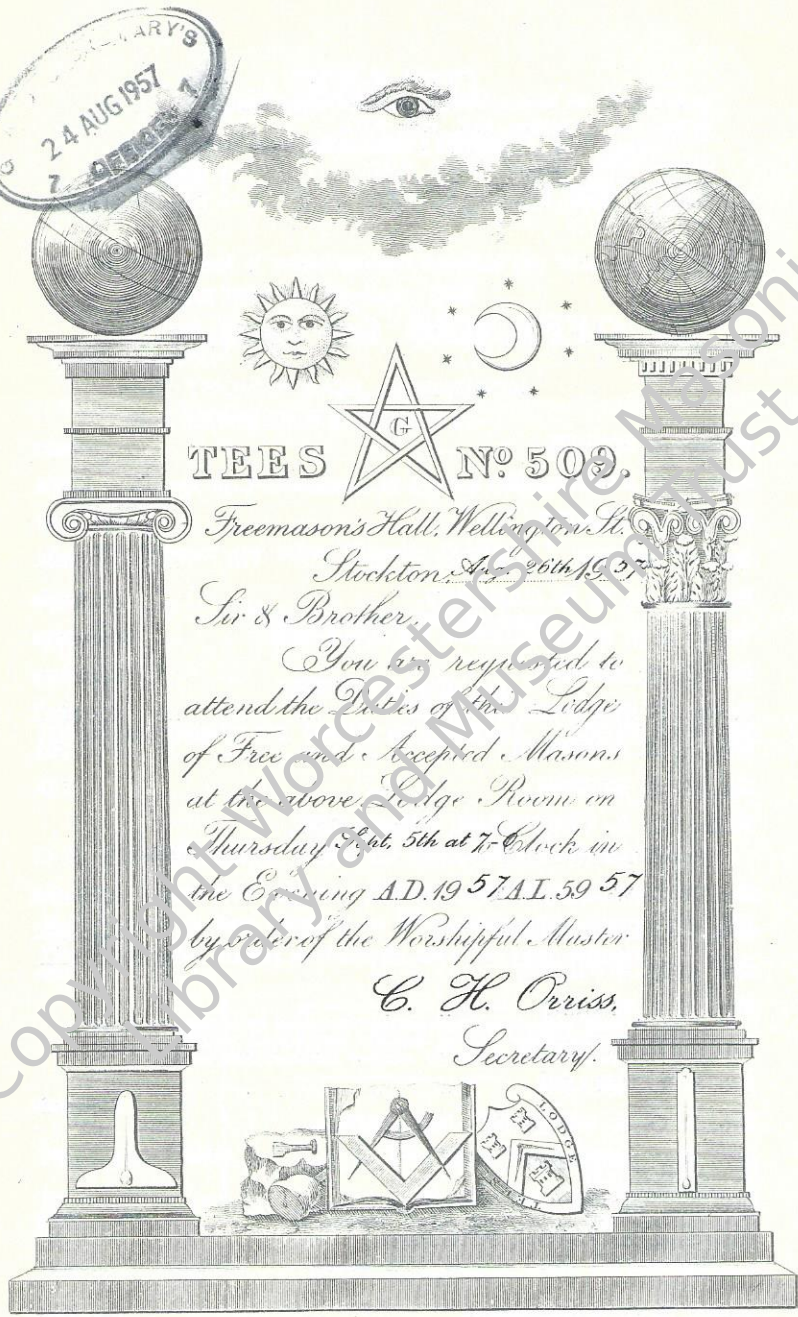 ARY'S
24 AUG 1957
7 OFFICE 7
G
TEES Nº 509.
Freemason's Hall, Wellington St.
Stockton, Aug. 26th 1957
Sir & Brother,
You are requested to
attend the Duties of this Lodge
of Free and Accepted Masons
at the above Lodge Room on
Thursday Sept. 5th at 7-O'Clock in
the Evening A.D. 1957 A.L. 5957
by order of the Worshipful Master
C. H. Orriss,
Secretary.
LODGE
TEES
Copyright Worcestershire Masonic
Library and Museum Trust